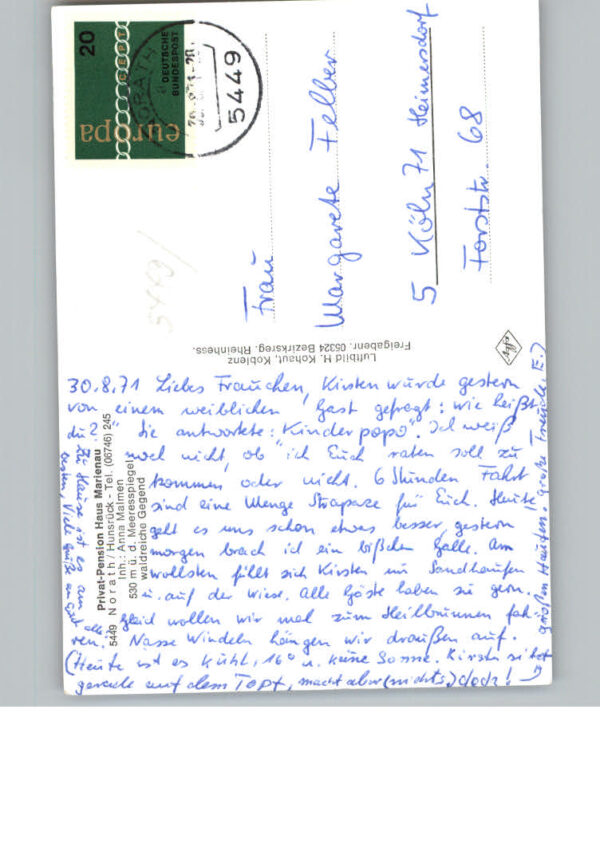 20
CEPT
DEUTSCHE
BUNDESPOST
europa
NORATH
5449
Frau
Margarete Felber
5 Köln 71 Heimersdorf
Forststr. 68
5449
Luftbild H. Kohaut, Koblenz
Freigabenr. 05324 Bezirksreg. Rheinhess.
Privat-Pension Haus Marienau
5449 Norath/Hunsrück - Tel. (06746) 245
Inh.: Anna Malmen
530 m ü. d. Meeresspiegel
waldreiche Gegend
30.8.71 Liebes Frauchen, Kirsten wurde gestern
von einem weiblichen Gast gefragt: wie heißt
du?" Sie antwortete: "Kinderpopo". Ich weiß
noch nicht, ob ich Euch raten soll zu
kommen oder nicht. 6 Stunden Fahrt
sind eine Menge Strapaze für Euch. Heute
geht es uns schon etwas besser, gestern
morgen brach ich ein bißchen Galle. Am
wollsten fühlt sich Kirsten im Sandhaufen
u. auf der Wiese. Alle Gäste haben sie gern.
Gleich wollen wir mal zum Heilbrunnen fah-
ren. Nasse Windeln hängen wir draußen auf.
(Heute ist es kühl, 16° u. keine Sonne. Kirsten sitzt
gerade auf dem Topf, macht aber (nichts) doch! →
großen Haufen. Große Freude. E.)
Zu Hause ist es am
besten, Viele Grüße an Euch alle